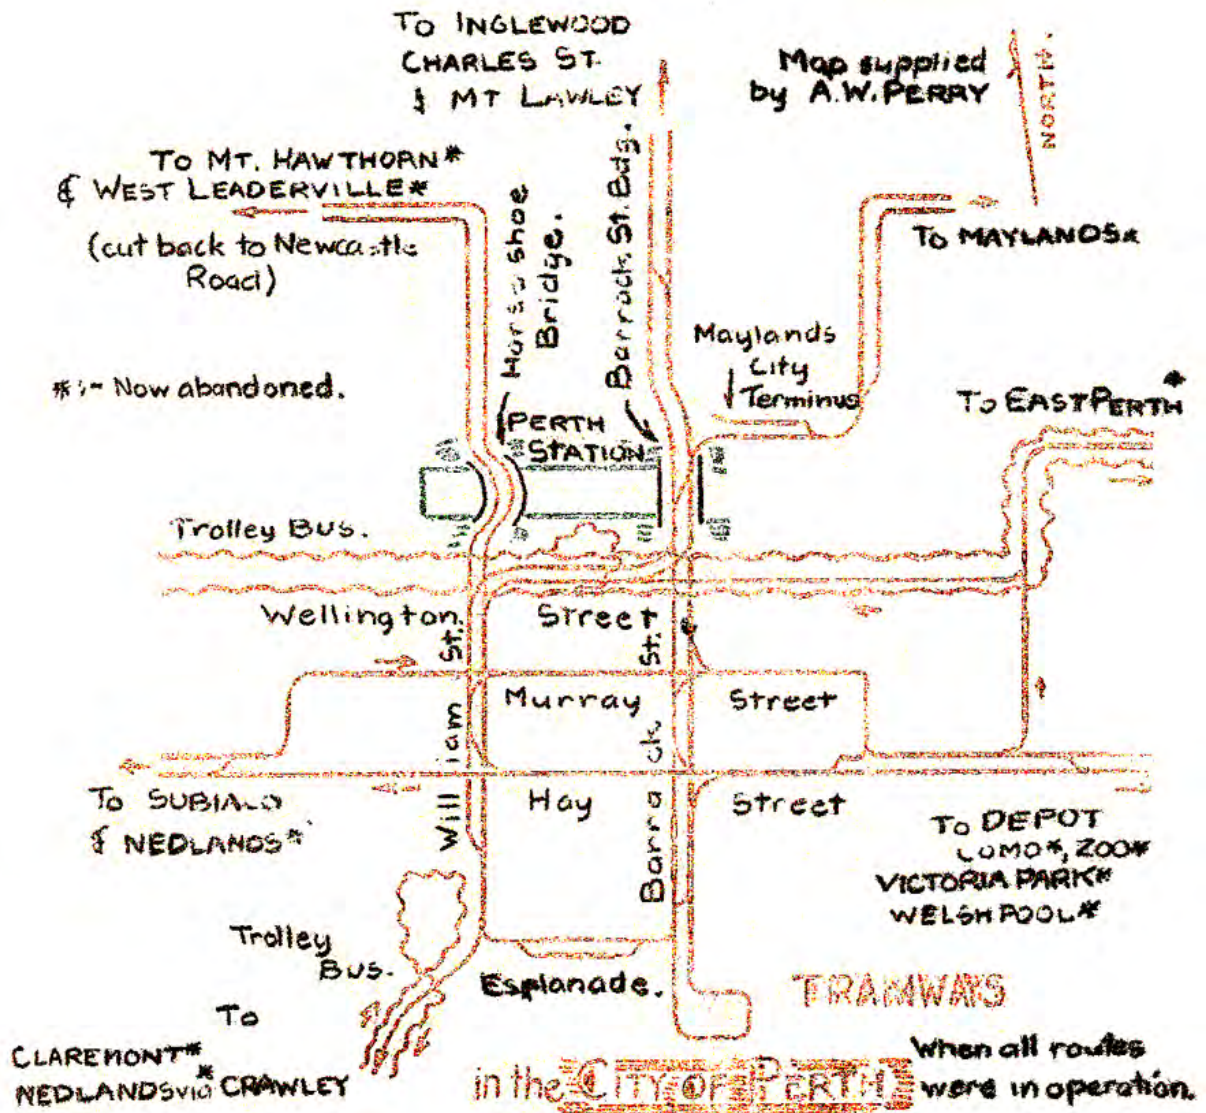 To INGLEWOOD
CHARLES ST.
& MT LAWLEY
Map supplied
by A.W. PERRY
NORTH.
To MT. HAWTHORN*
& WEST LEADERVILLE*
(cut back to Newcastle
Road)
Horse shoe
Bridge.
Barrack St. Bdg.
To MAYLANDS*
Maylands
City
Terminus
*:- Now abandoned.
PERTH
STATION
To EAST PERTH*
Trolley Bus.
Wellington Street
Murray Street
William St.
Barrack St.
Hay Street
To SUBIACO
& NEDLANDS*
To DEPOT
COMO*, ZOO*
VICTORIA PARK*
WELSHPOOL*
Trolley
Bus.
Esplanade.
To
CLAREMONT*
NEDLANDS* via CRAWLEY
TRAMWAYS
in the CITY OF PERTH
When all routes
were in operation.